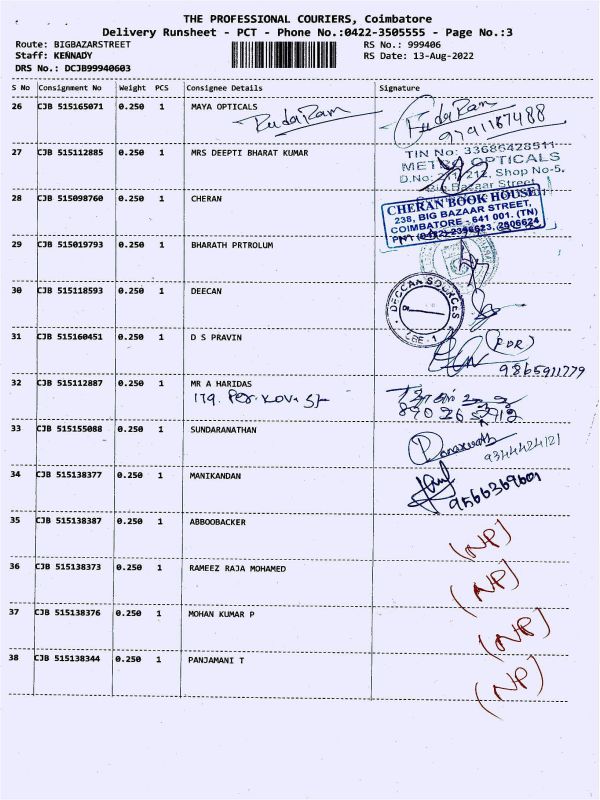 THE PROFESSIONAL COURIERS, Coimbatore
Delivery Runsheet - PCT - Phone No.:0422-3505555 - Page No.:3
Route: BIGBAZARSTREET RS No.: 999406
Staff: KENNADY RS Date: 13-Aug-2022
DRS No.: DCJB99940603
S No Consignment No Weight PCS Consignee Details Signature
26 CJB 515165071 0.250 1 MAYA OPTICALS
RudaRam RudaRam
9791167488
27 CJB 515112885 0.250 1 MRS DEEPTI BHARAT KUMAR
TIN No: 33686428511
OPTICALS
D.No: 212, Shop No-5,
Big Bazaar Street
28 CJB 515098760 0.250 1 CHERAN
CHERAN BOOK HOUSE
238, BIG BAZAAR STREET,
COIMBATORE - 641 001. (TN)
29 CJB 515019793 0.250 1 BHARATH PRTROLUM
30 CJB 515118593 0.250 1 DEECAN
DECCAN SOURCES
CBE - 1
31 CJB 515160451 0.250 1 D S PRAVIN
9865911779
32 CJB 515112887 0.250 1 MR A HARIDAS
179.
33 CJB 515155088 0.250 1 SUNDARANATHAN
9344424121
34 CJB 515138377 0.250 1 MANIKANDAN
9566369601
35 CJB 515138387 0.250 1 ABBOOBACKER
(NP)
36 CJB 515138373 0.250 1 RAMEEZ RAJA MOHAMED
(NP)
37 CJB 515138376 0.250 1 MOHAN KUMAR P
(NP)
38 CJB 515138344 0.250 1 PANJAMANI T
(NP)